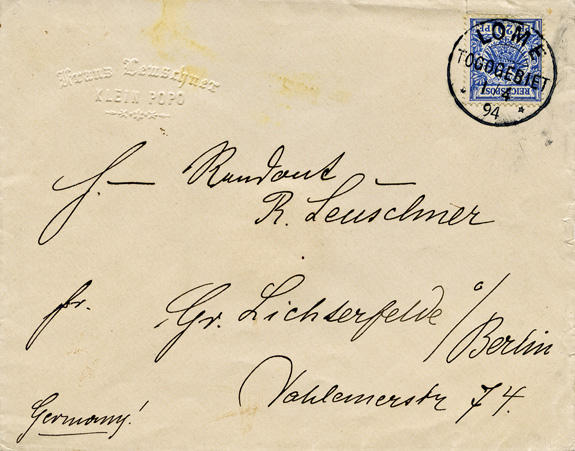 Franz Leuschner
KLEIN POPO
LOME
TOGOGEBIET
1 4
94
REICHSPOST
H.— Rendant
R. Leuschner
fr. Gr. Lichterfelde a/
Berlin
74.
Germany!